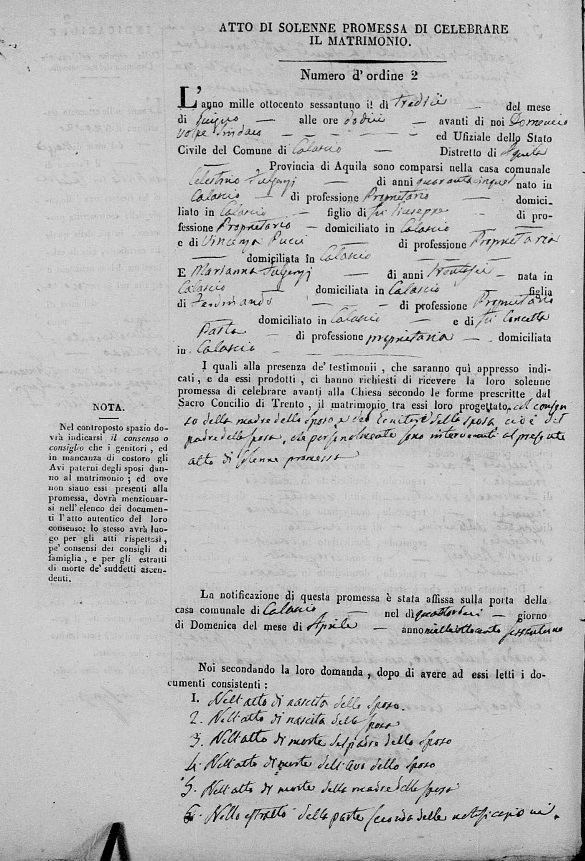 ATTO DI SOLENNE PROMESSA DI CELEBRARE
IL MATRIMONIO.
Numero d'ordine 2
L'anno mille ottocento sessantuno il dì tredici del mese
di Giugno alle ore dodici avanti di noi Domenico
Volpe Sindaco ed Ufiziale dello Stato
Civile del Comune di Calascio Distretto di Aquila
Provincia di Aquila sono comparsi nella casa comunale
Celestino Fulgenzj di anni quarantacinque nato in
Calascio di professione Proprietario domici-
liato in Calascio figlio di fu Giuseppe di pro-
fessione Proprietario domiciliato in Calascio
e di Vincenza Pucci di professione Proprietaria
domiciliata in Calascio
E Marianna Fulgenzj di anni trentasei nata in
Calascio domiciliata in Calascio figlia
di Ferdinando di professione Proprietario
domiciliato in Calascio e di fu Concetta
Pasta di professione proprietaria domiciliata
in Calascio
I quali alla presenza de' testimonii, che saranno quì appresso indi-
cati, e da essi prodotti, ci hanno richiesti di ricevere la loro solenne
promessa di celebrare avanti alla Chiesa secondo le forme prescritte dal
Sacro Concilio di Trento, il matrimonio tra essi loro progettato, col consen-
so della madre dello sposo e del genitore della sposa cioè del
padre della sposa, che personalmente sono intervenuti al presente
atto di solenne promessa
NOTA.
Nel controposto spazio do-
vrà indicarsi il consenso o
consiglio che i genitori, ed
in mancanza di costoro gli
Avi paterni degli sposi danno
al matrimonio; ed ove
non siano essi presenti alla
promessa, dovrà menzionar-
si nell'elenco dei documen-
ti l'atto autentico del loro
consenso: lo stesso avrà luo-
go per gli atti rispettosi,
pe' consensi dei consigli di
famiglia, e per gli estratti
di morte de' suddetti ascen-
denti.
La notificazione di questa promessa è stata affissa sulla porta della
casa comunale di Calascio nel dì quattordici giorno
di Domenica del mese di Aprile anno mille ottocento sessantuno
Noi secondando la loro domanda, dopo di avere ad essi letti i do-
cumenti consistenti:
1. Nell'atto di nascita dello sposo.
2. Nell'atto di nascita della sposa
3. Nell'atto di morte del padre dello sposo
4. Nell'atto di morte dell'avo dello sposo
5. Nell'atto di morte della madre della sposa
6. Nello estratto della parte seconda delle notificazioni.